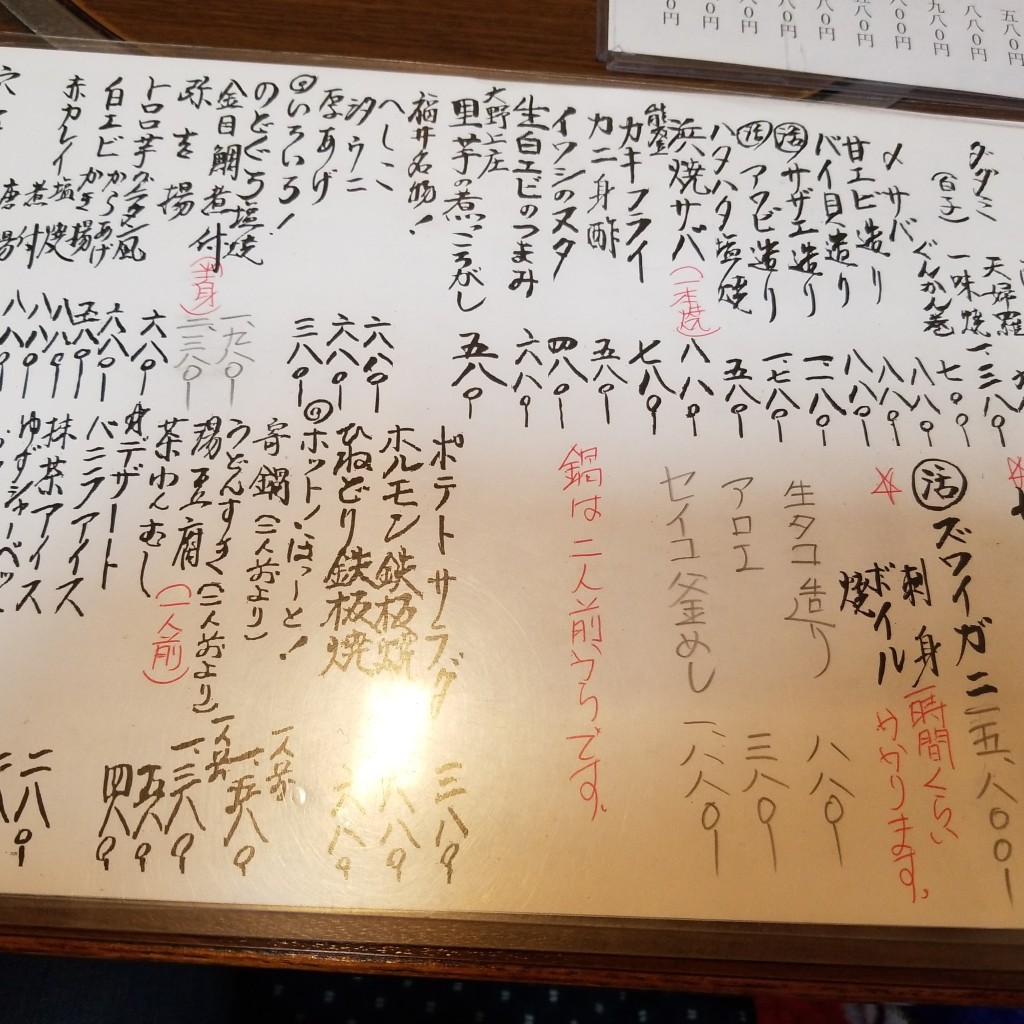 ダダミ
(白子)
天婦羅
一味焼
ぐんかん巻
一、三八〇ー
七〇〇ー
八八〇ー
〆サバ
八八〇ー
甘エビ造り
八八〇ー
バイ貝造り
一、二八〇ー
活サザエ造り
一、七八〇ー
活アワビ造り
ハタハタ塩焼
五八〇ー
浜焼サバ
(一本焼)
八八〇ー
能登
カキフライ
七八〇ー
カニ身酢
五八〇ー
イワシのヌタ
四八〇ー
生白エビのつまみ
六八〇ー
大野上庄
里芋の煮ころがし
五八〇ー
福井名物!
へしこ
六八〇ー
汐ウニ
六八〇ー
厚あげ
三八〇ー
いろいろ!
のどぐろ塩焼
一、九八〇ー
金目鯛煮付
(半身)
二、三八〇ー
トロロ芋のグラタン風
六八〇ー
白エビからあげ
六八〇ー
かき揚
五八〇ー
赤カレイ塩焼
八八〇ー
煮付
八八〇ー
唐揚
八八〇ー
活ズワイガニ
五、八〇〇ー
刺身
ボイル
焼
一時間くらい
かかります。
生タコ造り
八八〇ー
アロエ
三八〇ー
セイコ釜めし
一、八八〇ー
鍋は二人前からです。
ポテトサラダ
三八〇ー
ホルモン鉄板焼
八八〇ー
ひねどり鉄板焼
六八〇ー
ホット!、ほっーと!
寄鍋(二人前より)
一人前
一、五八〇ー
うどんすき(二人前より)
一人前
一、三八〇ー
湯豆腐
(一人前)
五八〇ー
茶わんむし
四八〇ー
デザート
バニラアイス
二八〇ー
抹茶アイス
ゆずシャーベット